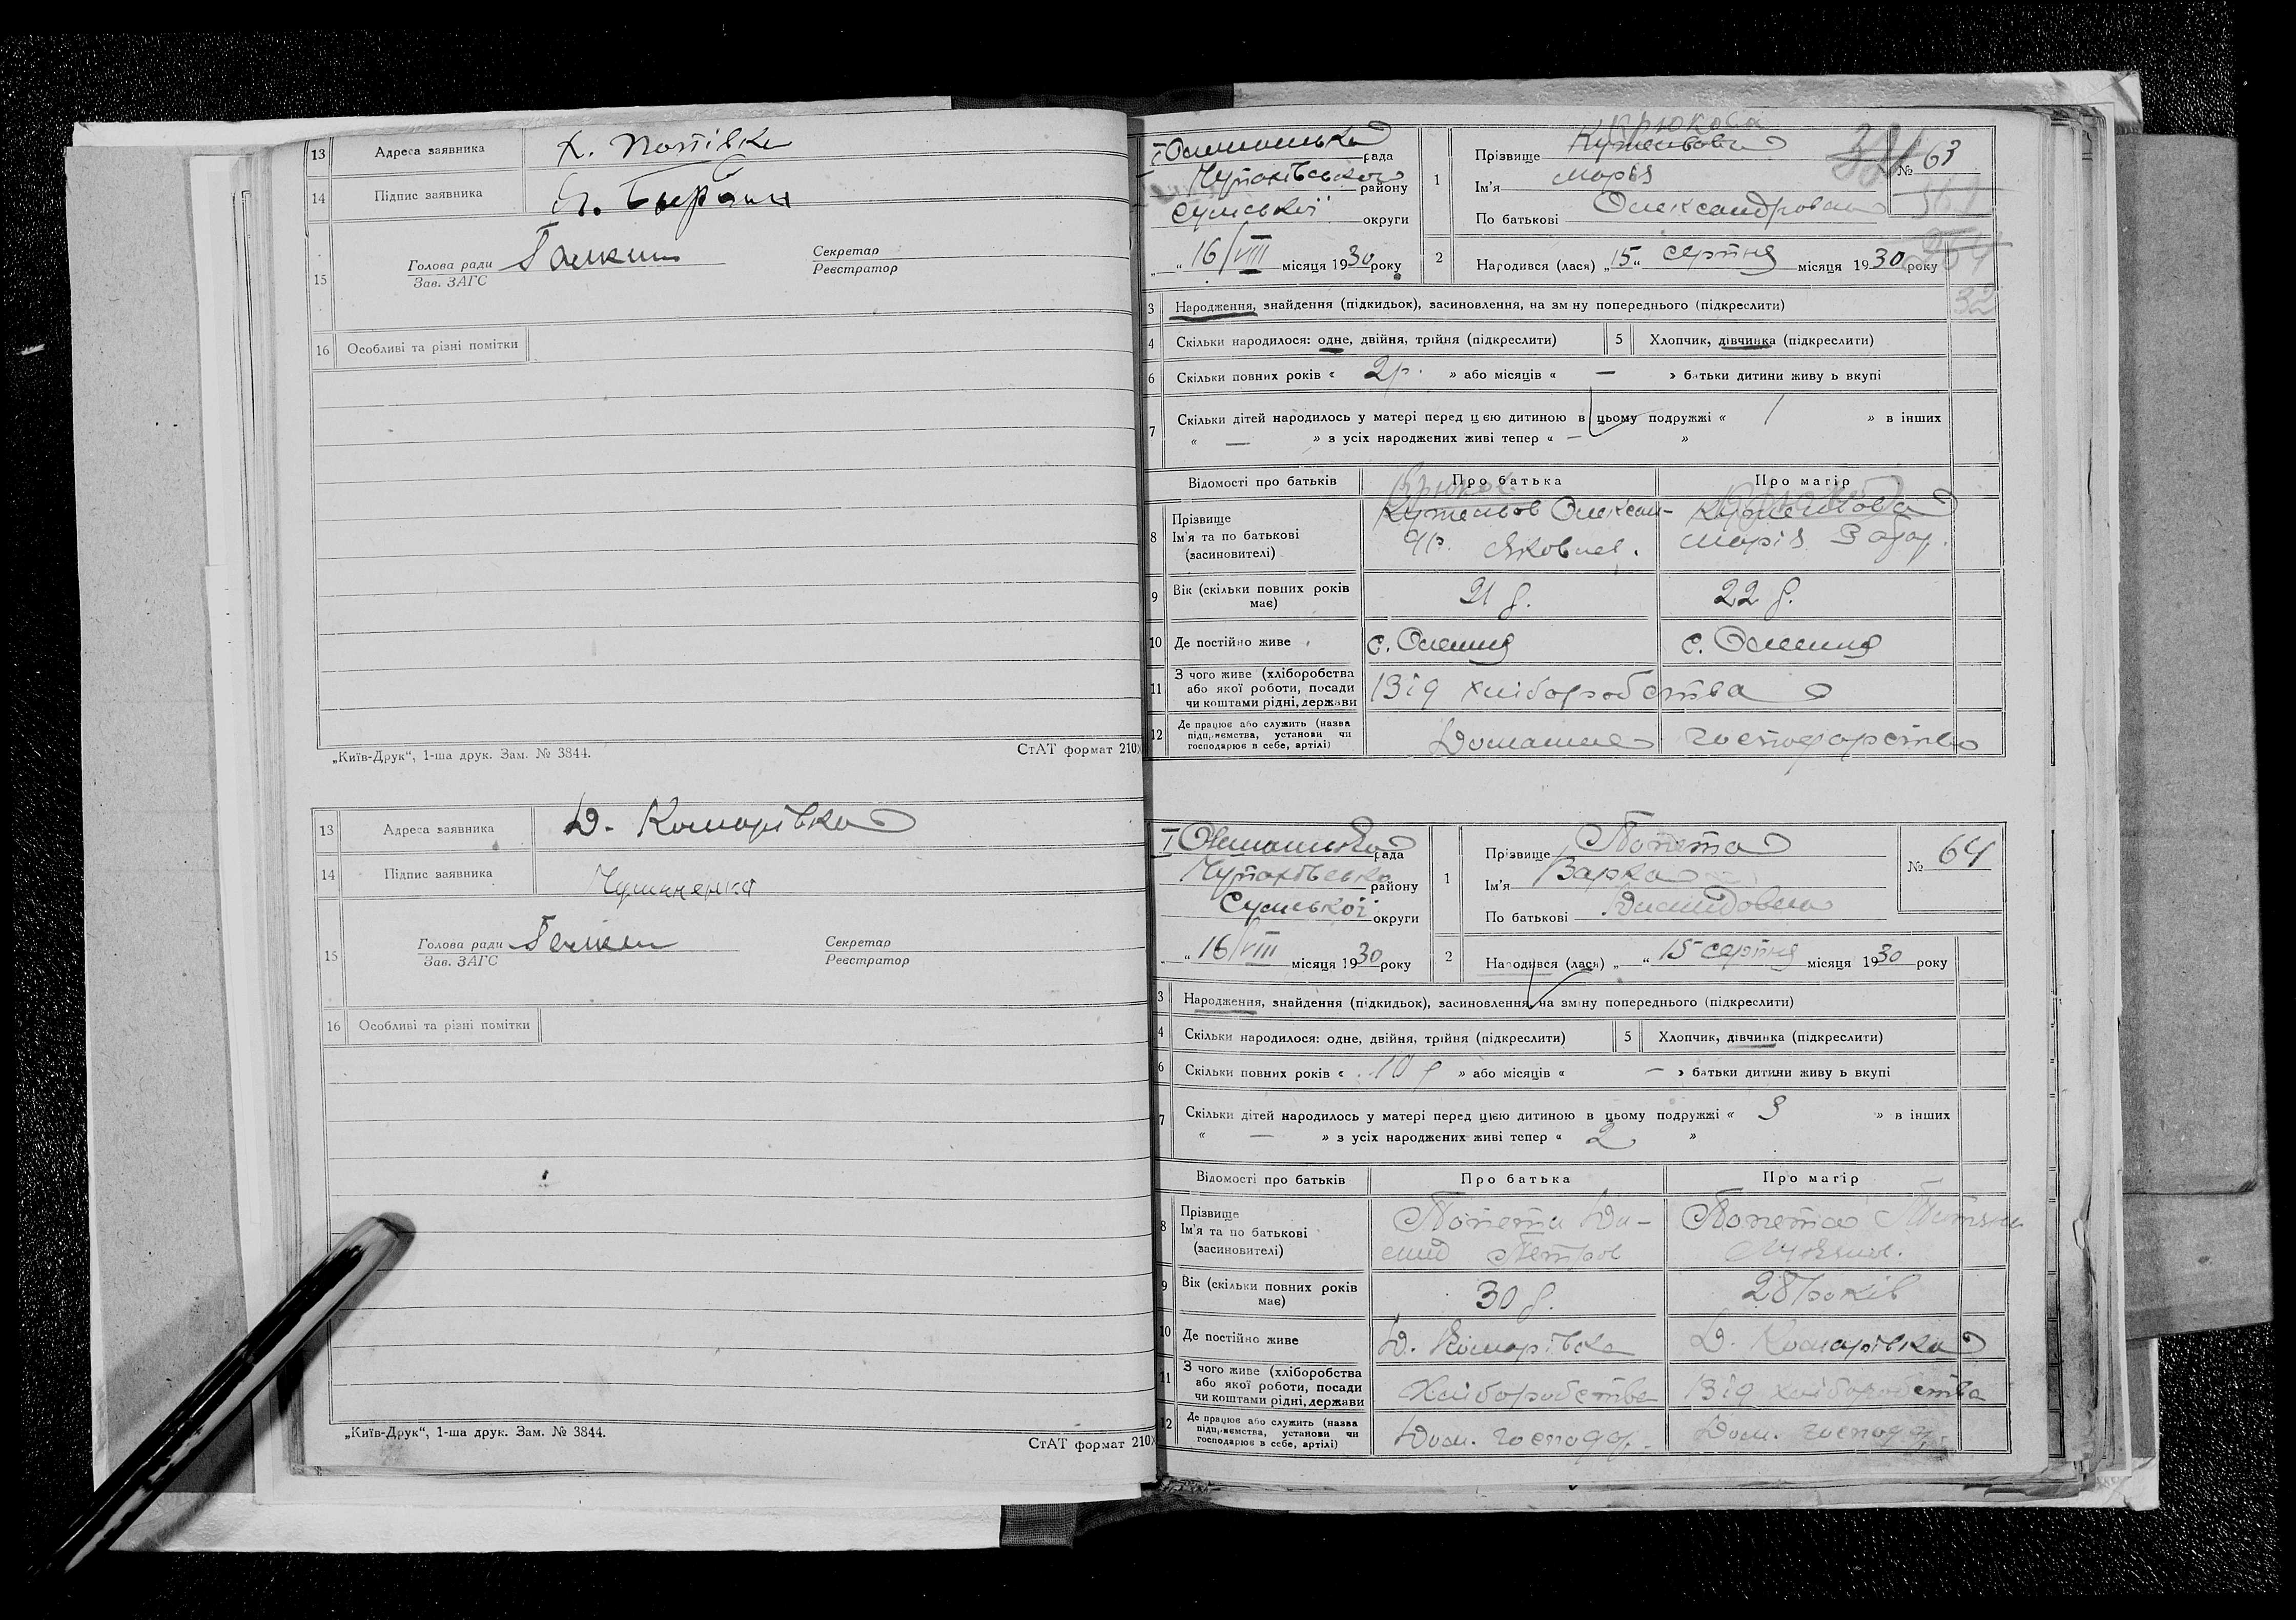 13 Адреса заявника х. Потівка
14 Підпис заявника
15 Голова ради Галкин Секретар
Зав. ЗАГС Реєстратор
16 Особливі та різні помітки
„Київ-Друк“, 1-ша друк. Зам. № 3844. СтАТ формат 210х
13 Адреса заявника Д. Комарівка
14 Підпис заявника
15 Голова ради Галкин Секретар
Зав. ЗАГС Реєстратор
16 Особливі та різні помітки
„Київ-Друк“, 1-ша друк. Зам. № 3844. СтАТ формат 210х
Крюкова
рада
Чупахівського району
Сумської округи
„ “ 16/VIII місяця 1930 року
1 Прізвище
Ім'я Марія
По батькові Олександровна
№ 63
2 Народився (лася) „15“ серпня місяця 1930 року
3 Народження, знайдення (підкидьок), засиновлення, на зміну попереднього (підкреслити)
4 Скільки народилося: одне, двійня, трійня (підкреслити) 5 Хлопчик, дівчинка (підкреслити)
6 Скільки повних років « 2р. » або місяців « — » батьки дитини живуть вкупі
7 Скільки дітей народилось у матері перед цією дитиною в цьому подружжі « 1 » в інших
« — » з усіх народжених живі тепер « — »
Відомості про батьків Про батька Про матір
8 Прізвище
Ім'я та по батькові
(засиновителі)
Олексан-
др. Яковлев.
Марія Захар.
9 Вік (скільки повних років має) 21 р. 22 р.
10 Де постійно живе с. Олешня с. Олешня
11 З чого живе (хліборобства або якої роботи, посади чи коштами рідні, держави Від хліборобства
12 Де працює або служить (назва підприємства, установи чи господарює в себе, артілі) Домашнє господарство
рада
Чупахівська району
Сумської округи
„ “ 16/VIII місяця 1930 року
1 Прізвище Попета
Ім'я Варка
По батькові Дмидовна
№ 64
2 Народився (лася) „ “ 15 серпня місяця 1930 року
3 Народження, знайдення (підкидьок), засиновлення, на зміну попереднього (підкреслити)
4 Скільки народилося: одне, двійня, трійня (підкреслити) 5 Хлопчик, дівчинка (підкреслити)
6 Скільки повних років « 10 р » або місяців « — » батьки дитини живуть вкупі
7 Скільки дітей народилось у матері перед цією дитиною в цьому подружжі « 3 » в інших
« — » з усіх народжених живі тепер « 2 »
Відомості про батьків Про батька Про матір
8 Прізвище
Ім'я та по батькові
(засиновителі)
Попета Ди-
мид Петров
Попета Тетяна
9 Вік (скільки повних років має) 30 р. 28 років
10 Де постійно живе Д. Комарівка Д. Комарівка
11 З чого живе (хліборобства або якої роботи, посади чи коштами рідні, держави Хліборобства Від хліборобства
12 Де працює або служить (назва підприємства, установи чи господарює в себе, артілі) Дом. господ. Дом. господ.